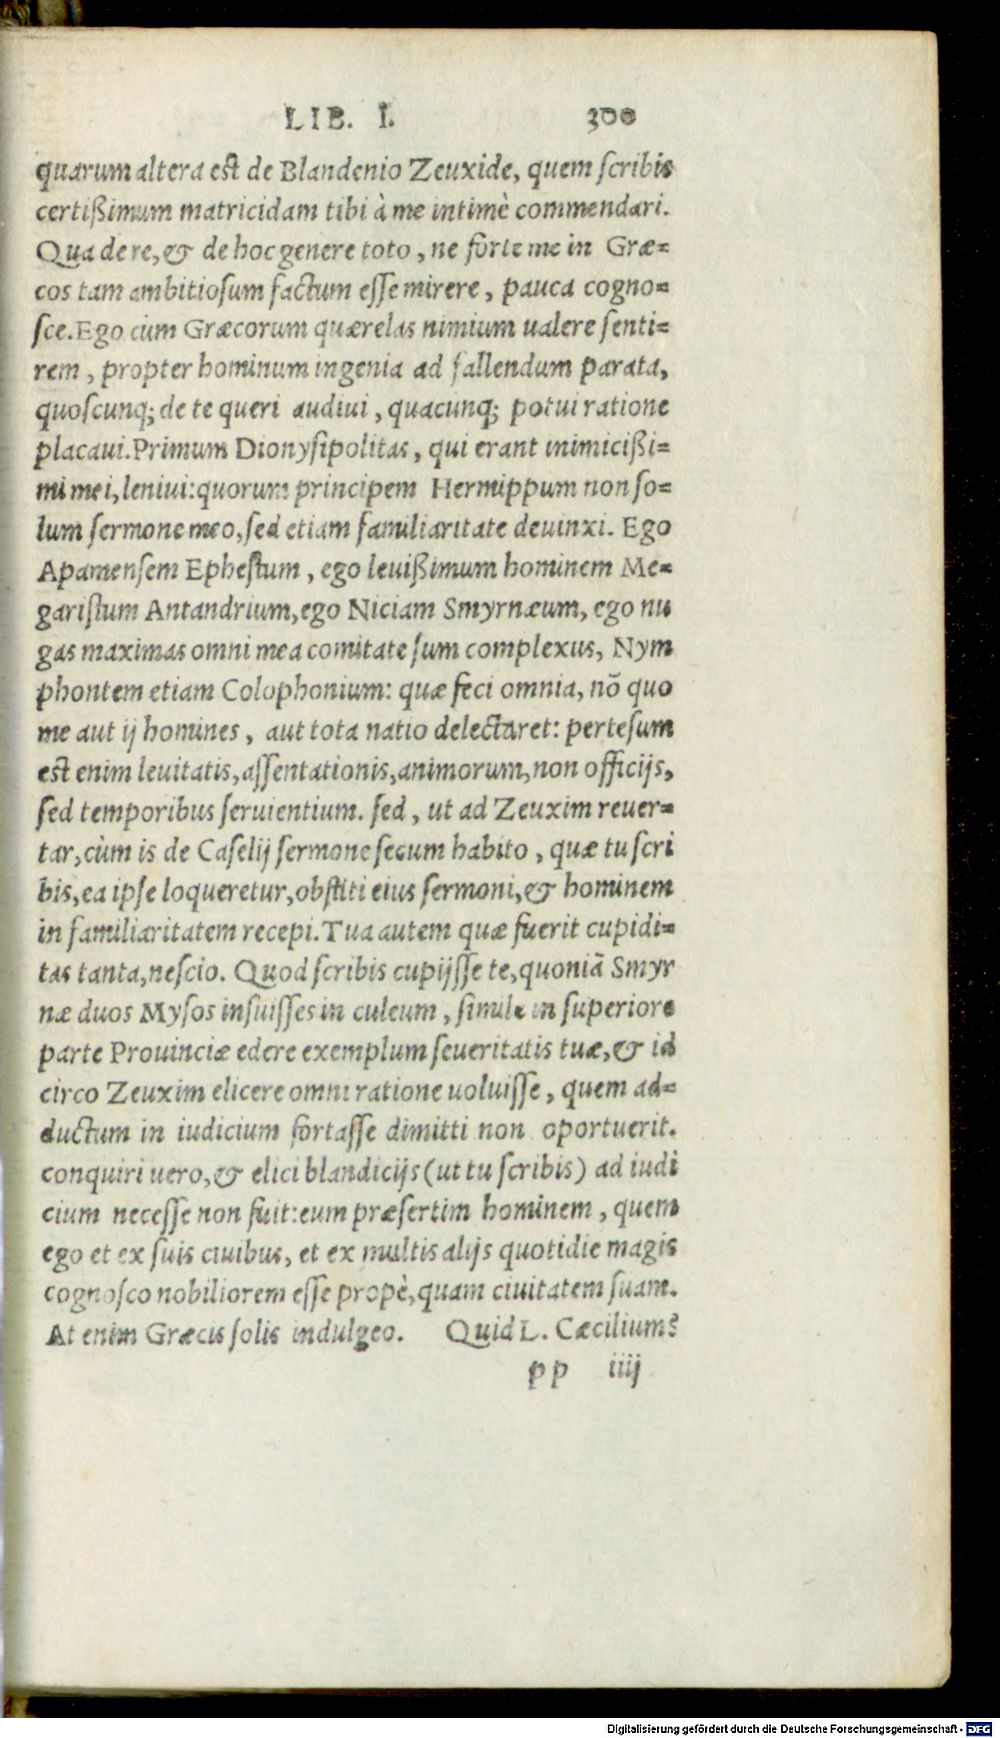 LIB. I. 300
quarum altera est de Blandenio Zeuxide, quem scribis
certißimum matricidam tibi à me intimè commendari.
Qua de re, & de hoc genere toto, ne forte me in Græ=
cos tam ambitiosum factum esse mirere, pauca cogno=
sce. Ego cùm Græcorum quærelas nimium ualere senti=
rem, propter hominum ingenia ad fallendum parata,
quoscunq; de te queri audiui, quacunq; potui ratione
placaui. Primum Dionysipolitas, qui erant inimicißi=
mi mei, leniui: quorum principem Hermippum non so=
lum sermone meo, sed etiam familiaritate deuinxi. Ego
Apamensem Ephestum, ego leuißimum hominem Me=
garistum Antandrium, ego Niciam Smyrnæum, ego nu
gas maximas omni mea comitate sum complexus, Nym
phontem etiam Colophonium: quæ feci omnia, nō quo
me aut ij homines, aut tota natio delectaret: pertesum
est enim leuitatis, assentationis, animorum, non officijs,
sed temporibus seruientium. sed, ut ad Zeuxim reuer=
tar, cùm is de Caselij sermone secum habito, quæ tu scri
bis, ea ipse loqueretur, obstiti eius sermoni, & hominem
in familiaritatem recepi. Tua autem quæ fuerit cupidi=
tas tanta, nescio. Quod scribis cupijsse te, quoniã Smyr
næ duos Mysos insuisses in culeum, simile in superiore
parte Prouinciæ edere exemplum seueritatis tuæ, & id
circo Zeuxim elicere omni ratione uoluisse, quem ad=
ductum in iudicium fortasse dimitti non oportuerit.
conquiri uero, & elici blandicijs (ut tu scribis) ad iudi
cium necesse non fuit: eum præsertim hominem, quem
ego et ex suis ciuibus, et ex multis alijs quotidie magis
cognosco nobiliorem esse propè, quam ciuitatem suam.
At enim Græcis solis indulgeo. Quid L. Cæcilium?
pp iiij
Digitalisierung gefördert durch die Deutsche Forschungsgemeinschaft - DFG